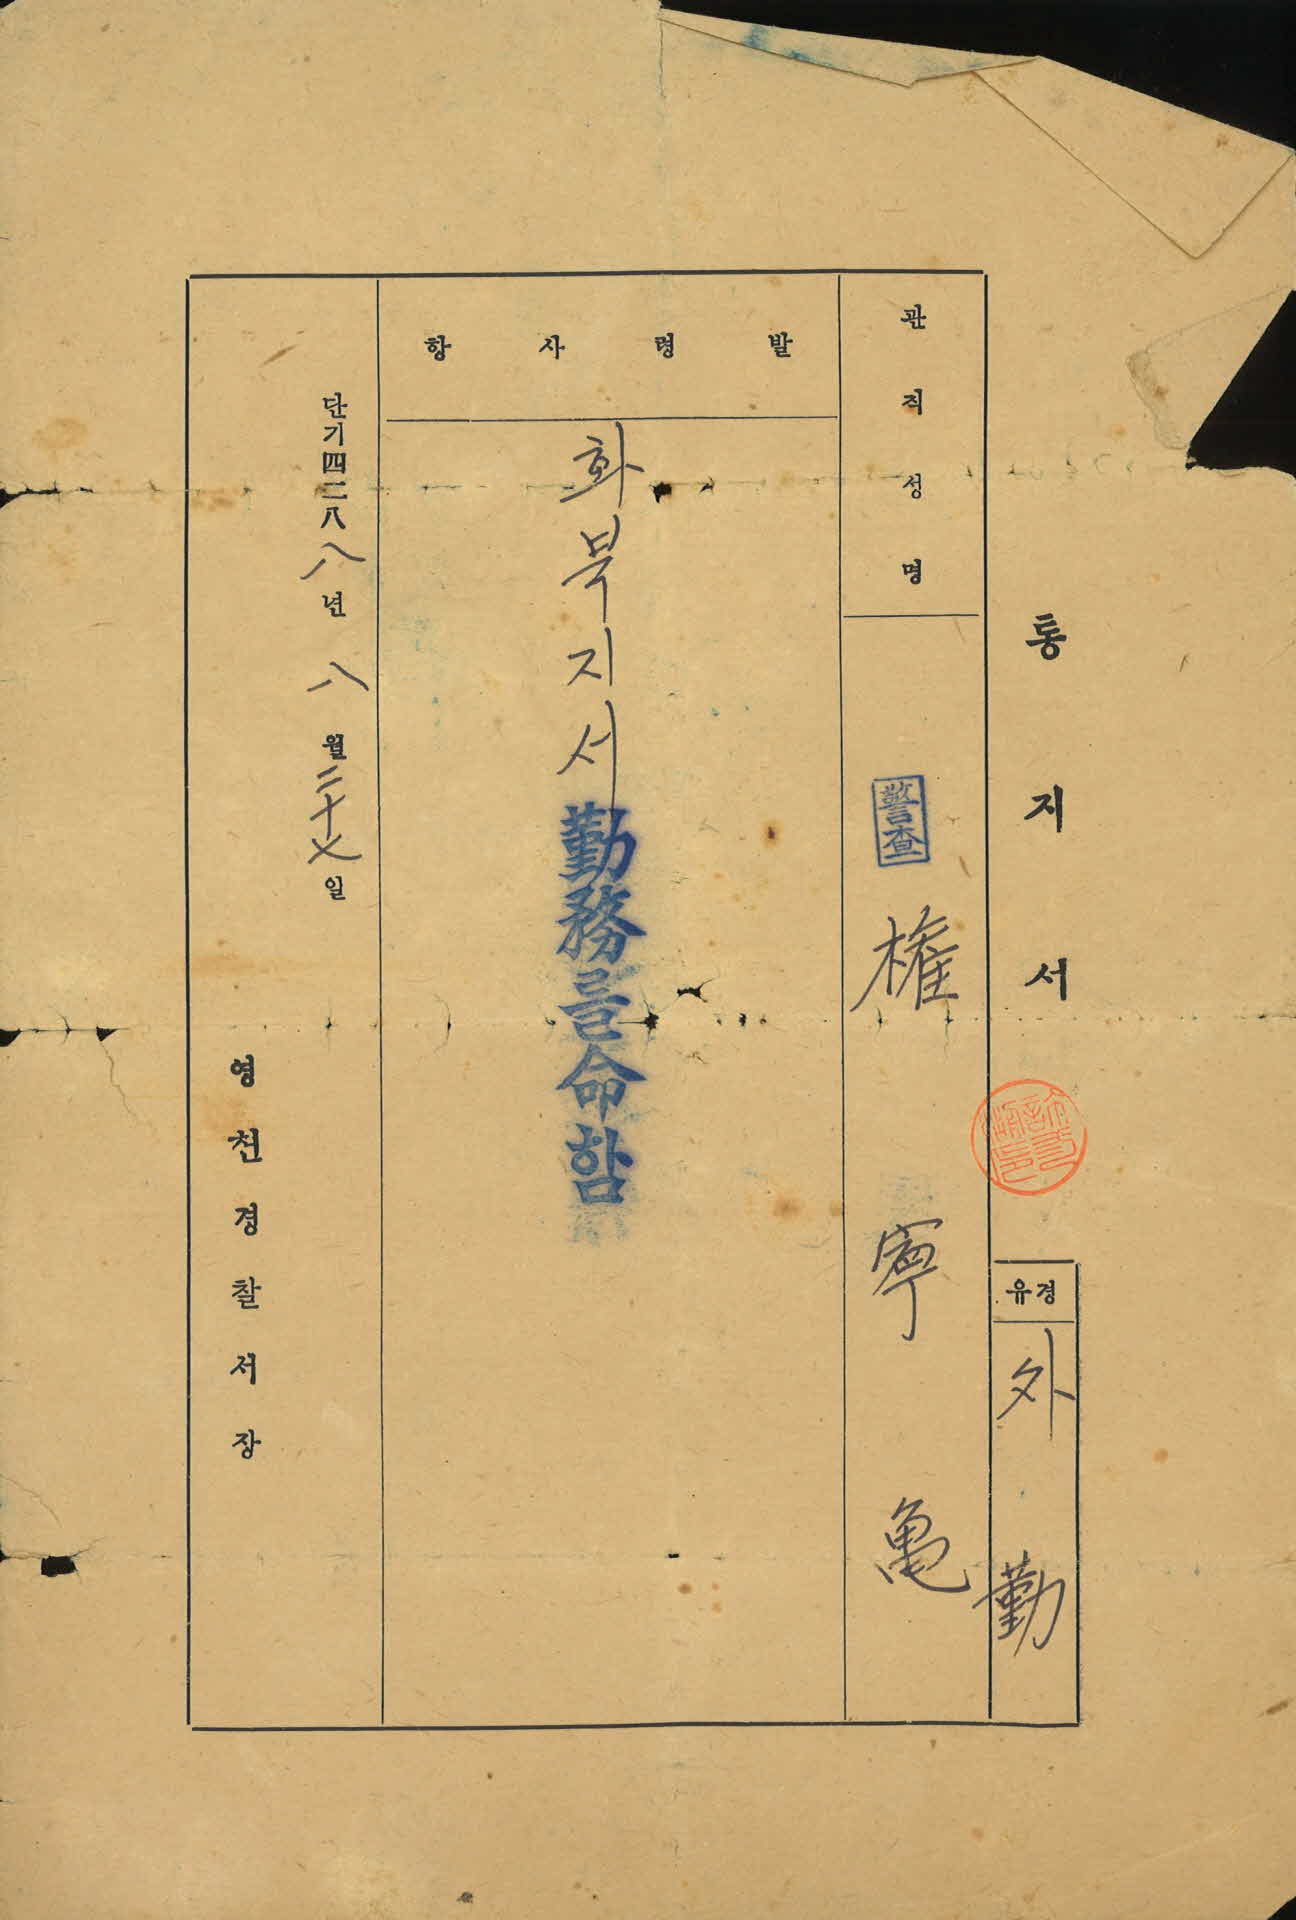 통지서
경유
外勤
관직성명
警査 權寧龜
발령사항
화북지서勤務를命함
단기四二八八年 八월二十七일
영천경찰서장